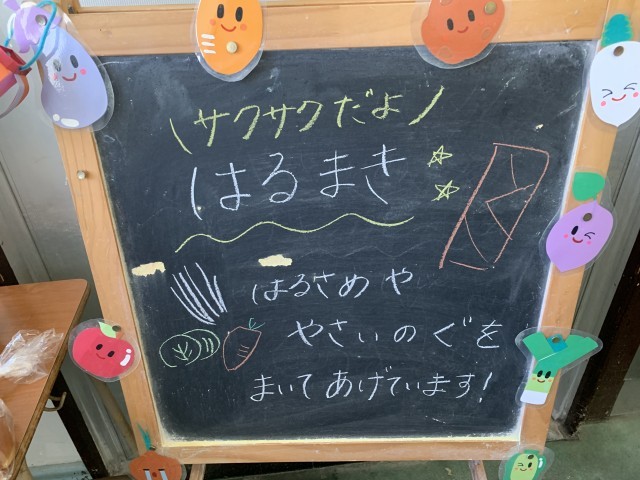 \サクサクだよ/
はるまき
はるさめや
やさいのぐを
まいてあげています!